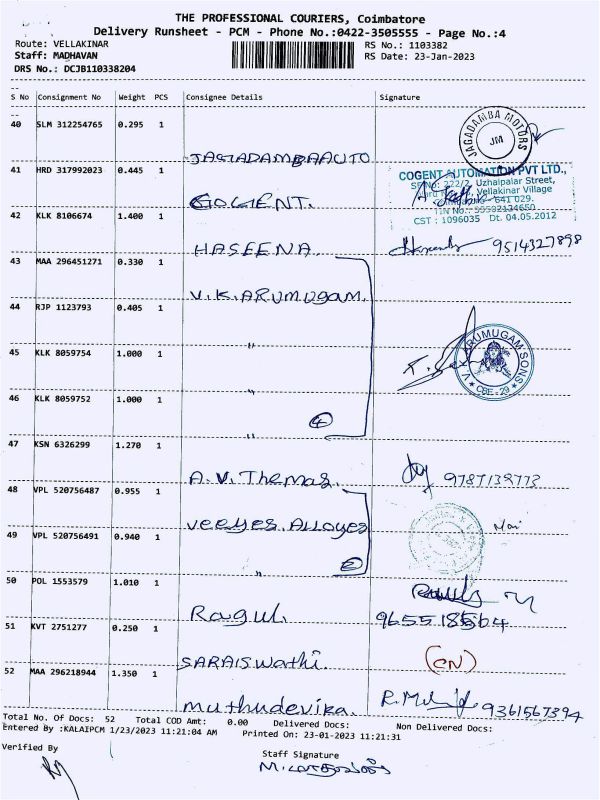 THE PROFESSIONAL COURIERS, Coimbatore
Delivery Runsheet - PCM - Phone No.:0422-3505555 - Page No.:4
Route: VELLAKINAR RS No.: 1103382
Staff: MADHAVAN RS Date: 23-Jan-2023
DRS No.: DCJB110338204
S No Consignment No Weight PCS Consignee Details Signature
40 SLM 312254765 0.295 1
JAGADAMBA MOTORS
JM
JAGADAMBAAUTO
41 HRD 317992023 0.445 1
COGENT AUTOMATION PVT LTD.,
SF No: 222/2, Uzhaipalar Street,
Vellakinar Village
641 029.
CST : 1096035 Dt. 04.05.2012
COGENT.
42 KLK 8106674 1.400 1
HASEENA. 9514327898
43 MAA 296451271 0.330 1
V.K.ARUMUGAM.
44 RJP 1123793 0.405 1
"
V. ARUMUGAM SONS
CBE-29
45 KLK 8059754 1.000 1
"
46 KLK 8059752 1.000 1
4
"
47 KSN 6326299 1.270 1
A.V. Thomas. 9787139773
48 VPL 520756487 0.955 1
Veeyes Alloyes
49 VPL 520756491 0.940 1
2
"
50 POL 1553579 1.010 1
Ragul. 9655185564
51 KVT 2751277 0.250 1
SARAISWathi. (CN)
52 MAA 296218944 1.350 1
Muthudevika. 9361567394
Total No. Of Docs: 52 Total COD Amt: 0.00 Delivered Docs: Non Delivered Docs:
Entered By :KALAIPCM 1/23/2023 11:21:04 AM Printed On: 23-01-2023 11:21:31
Verified By
Staff Signature